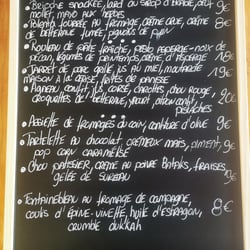 Brioche snackée, lard ou sirop d'érable, oeuf 9€
mollet, mayo aux herbes
Polenta fourrée au fromage, crème crue, crème 8€
de betterave fumée, pignons de pin
Rouleau de pâte fraîche, pesto asperge-noix de
pécan, légumes de printemps, crème d'asperge 18€
Jarret de porc grillé, jus au miel, moutarde 19€
maison à la bière, frites de panisse
Agneau confit, jus corsé, carottes, chou rouge, 20€
croquettes de betterave, yaourt
pistaches
Assiette de fromages du coin, confiture d'olive 9€
Tartelette au chocolat, crémeux maïs, piment, 9€
pop corn caramélisé
Chou patissier, crème au poivre Bataks, fraises, 9€
gelée de sureau
Fontainebleau au fromage de campagne,
coulis d'épine-vinette, huile d'estragon, 8€
crumble dukkah